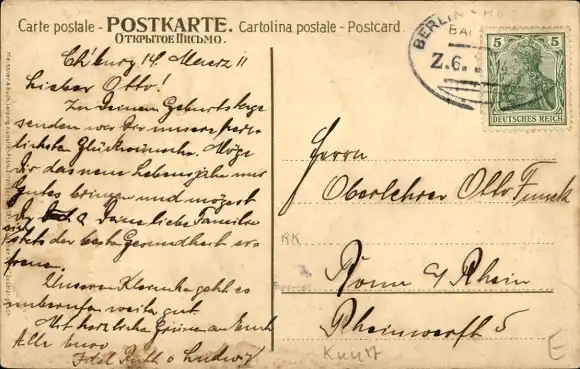 Carte postale - POSTKARTE. Cartolina postale - Postcard
ОТКРЫТОЕ ПИСЬМО.
Ch'burg 14. Maerz 11
Lieber Otto!
Zu Deinem Geburtstage
senden wir Dir unsere herz-
lichsten Glückwünsche. Möge
Dir das neue Lebensjahr nur
Gutes bringen und mögest
Du & Deine liebe Familie
sich
stets der besten Gesundheit er-
freuen.
Unserem Kleinen geht es
unberufen weiter gut.
Mit herzlichen Grüssen an Euch
Alle Eure
Ruth & Ludwig
BERLIN
BA
Z.6.
5 5
DEUTSCHES REICH
Herrn
Oberlehrer Otto Funck
RK
Bonn a/Rhein
Rheinwerft 5
E